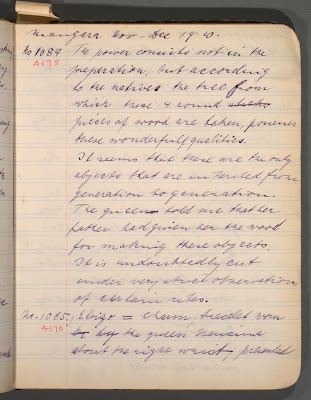 Niangara Nov - Dec 1910.
No 1084 The power consists not in the
4175 preparation, but according
to the natives the tree from
which these 4 round sticks
pieces of wood are taken, possesses
these wonderfull qualities.
It seems that these are the only
objects that are inherited from
generation to generation.
The queen told me that her
father had given her the wood
for making these objects.
It is undoubtedly cut
under very strict observation
of certain rules.
No. 1085. = Charm, bracelet worn
4176 by the queen
about the right wrist, presented